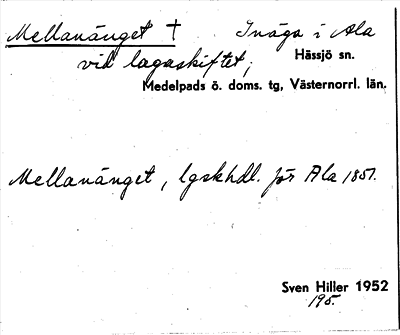 Mellanänget † Inäga i Ala
vid lagaskiftet;
Hässjö sn.
Medelpads ö. doms. tg, Västernorrl. län.
Mellanänget, lgskhdl. för Ala 1851.
Sven Hiller 1952
195.